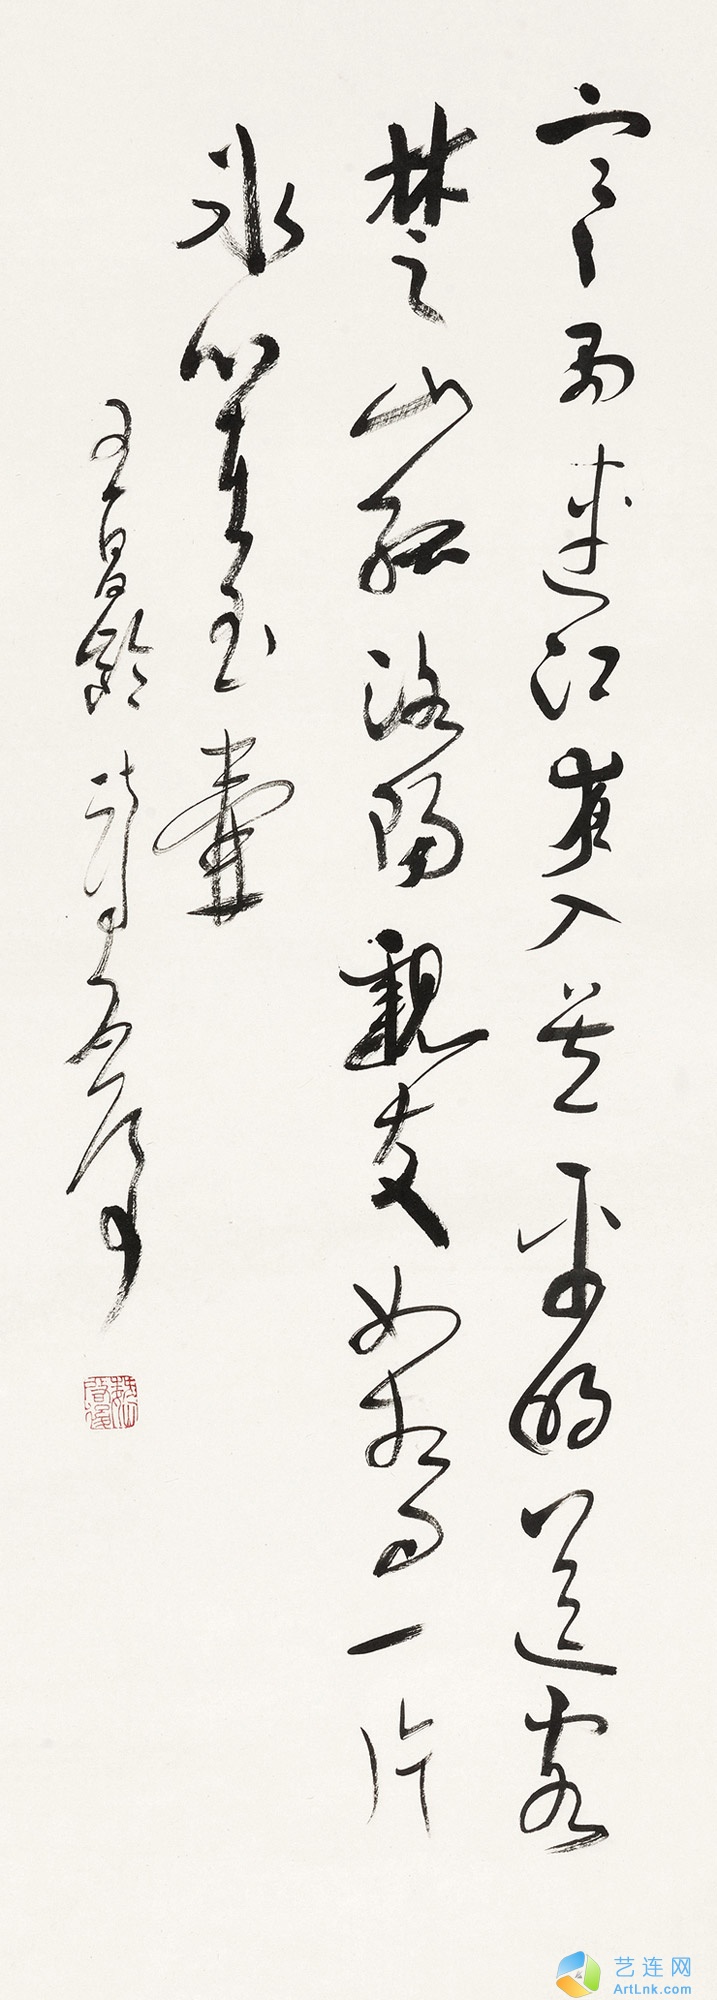 寒雨連江夜入吴平明送客
楚山孤洛陽親友如相問一片
冰心在玉壺
王昌齡詩
艺连网
ArtLnk.com